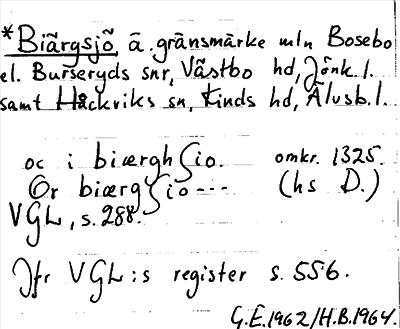 *Biärgsjö, ä. gränsmärke mln Bosebo
el. Burseryds snr, Västbo hd, Jönk. l.
samt Håckviks sn, Kinds hd, Älvsb. l.
oc i biærghsio. omkr. 1325.
Or biærgsio --- (hs D.)
VGL, s. 288.
Jfr VGL:s register s. 556.
G.E. 1962/H.B. 1964.